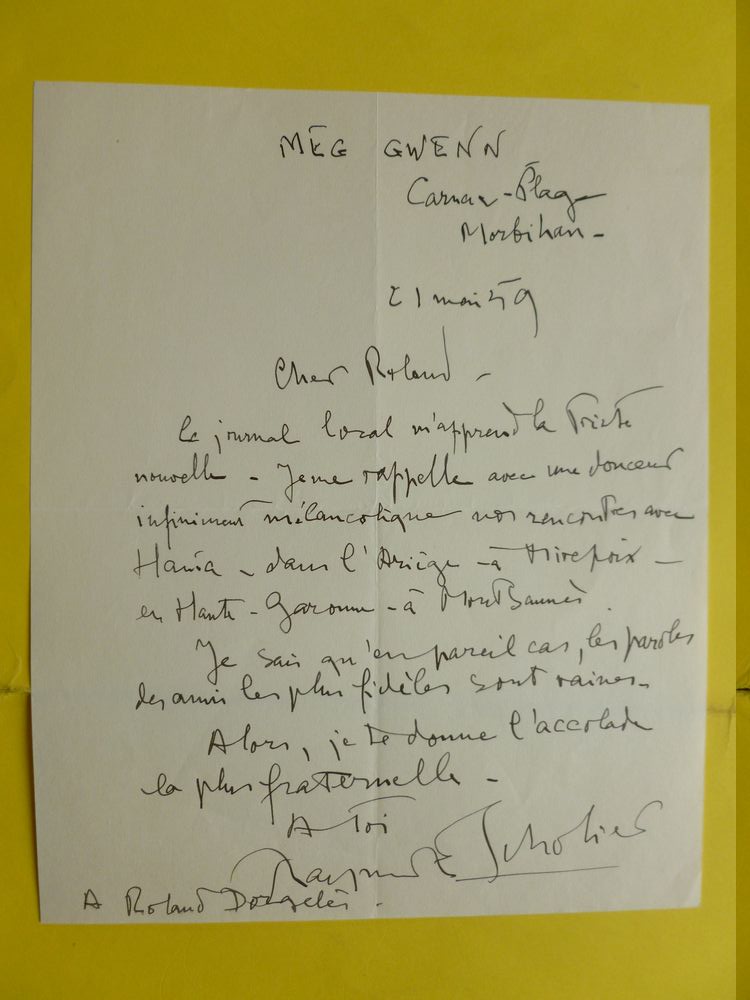 MEG GWENN
Carnac-Plage
Morbihan -
21 mai 59
Cher Roland -
Le journal local m'apprend la triste
nouvelle - Je me rappelle avec une douceur
infiniment mélancolique nos rencontres avec
Hania - dans l'Ariège - à Mirepoix -
en Haute-Garonne - à Montsaunès.
Je sais qu'en pareil cas, les paroles
des amis les plus fidèles sont vaines -
Alors, je te donne l'accolade
la plus fraternelle -
A toi
Raymond Escholier
A Roland Dorgelès.